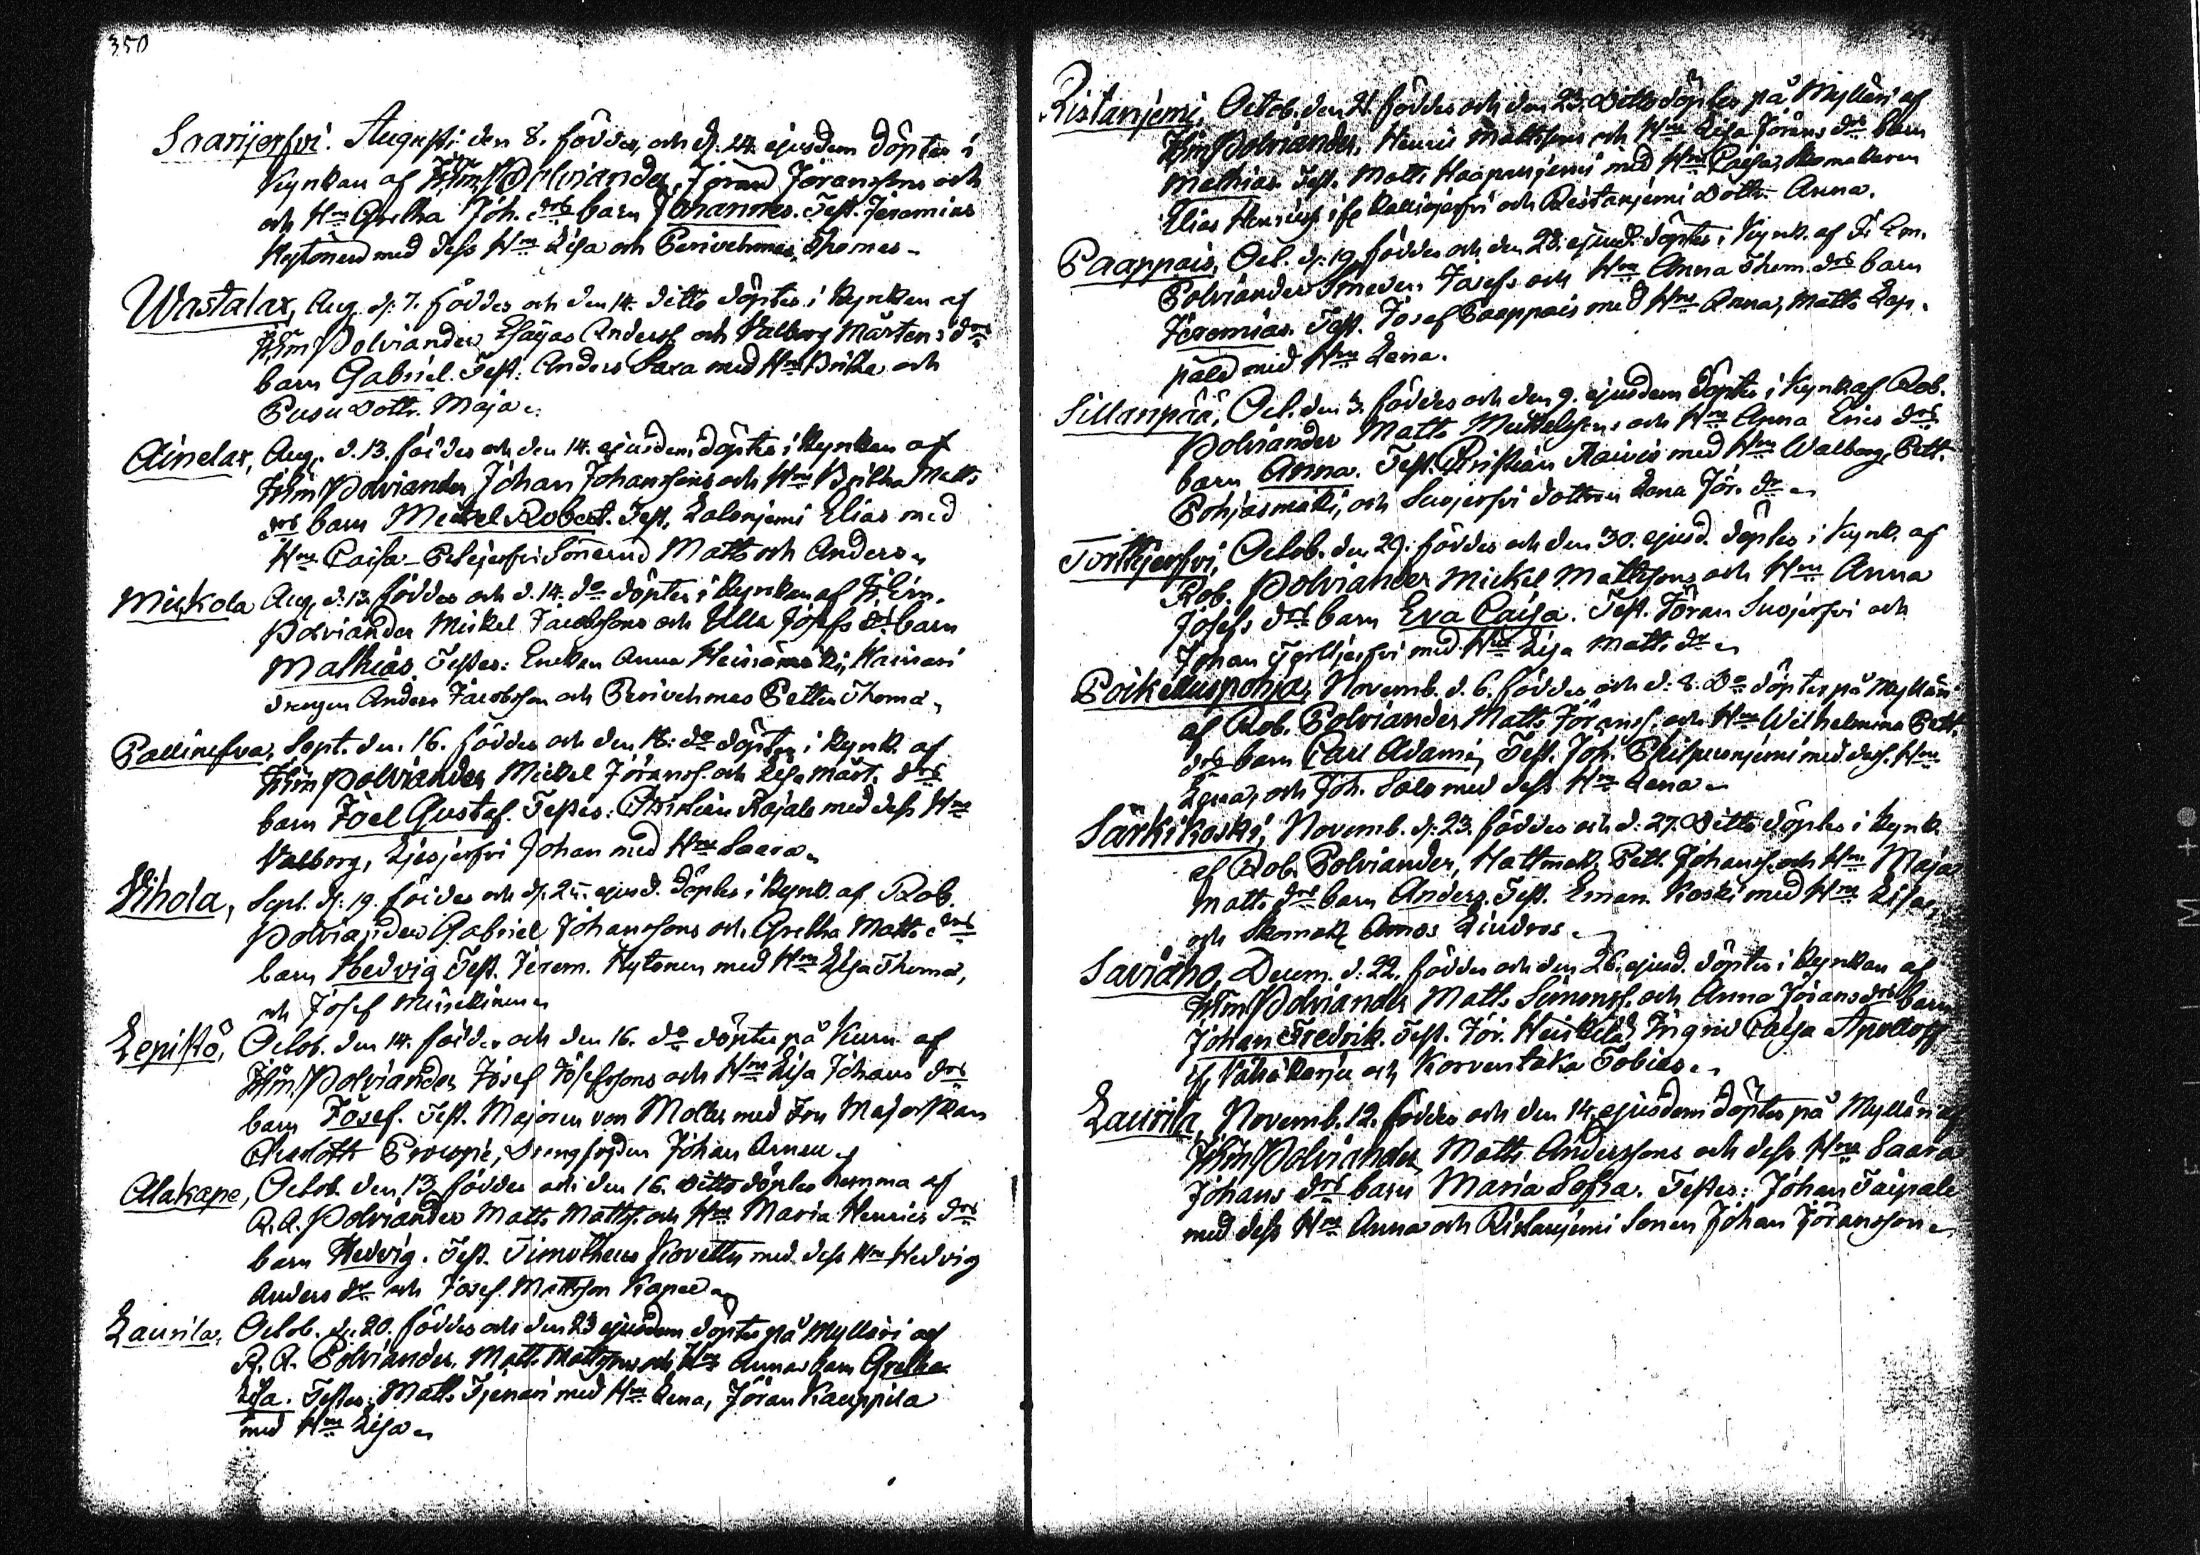 350
Saarijerfvi. Augusti den 8. föddes, och d. 24. ejusdem döptes i
Kyrkan af Polviander, Jöran Jöranssons och
och Hu Gretha Joh. drs barn Johannes. Test. Jeremias
Hytönen med dess Hu Lisa och Perivehmas Thomas
Wastalax, Aug. d. 7. föddes och den 14. ditto döptes i Kyrkan af
Polviander, Esaias Anderss och Valborg Mårtens drs
barn Gabriel. Test: Anders Saxa med Hu Britha och
Pusu Dottr. Maja
Ainelax, Aug. d. 13. föddes och den 14. ejusdem döptes i Kyrkan af
Polviander Johan Johanssons och Hu Britha Matts
drs barn Mickel Robert. Test. Elias med
Hu Caisa Sönerne Matts och Anders
Mickola Aug. d. 13. föddes och d. 14. do döptes i Kyrkan af
Polviander Mickel Jacobssons och Ulla Josefs drs barn
Mathias. Testes: Enckan Anna Heinämäki, Hainari
drengen Anders Jacobsson och Perivehmas Petter Thoma
Pallinefva, Sept. den 16. föddes och den 18. do döptes i Kyrk. af
Polviander Mickel Jöranss. och Lisa Märt. drs
barn Joel Gustaf. Testes: Christian Rajala med dess Hu
Valborg, Johan med Hu Saara
Vihola, Sept. d. 19. föddes och d. 25. ejusd. döptes i Kyrk. af Rob.
Polviander Gabriel Johanssons och Gretha Matts drs
barn Hedvig Test. Jerem. Hytönen med Hu Lisa Thoma,
och Josef
Lepistö, Octob. den 14. föddes och den 16. do döptes på Kuru af
Polviander Josef Josefssons och Hu Lisa Johans drs
barn Josef. Test. Majoren von Moller med Fru Majorskan
Charlotte Procopé, Johan
Alakape, Octob. den 13. föddes och den 16. ditto döptes hemma af
R. A. Polviander Matts Mattss. och Hu Maria Henrics drs
barn Hedvig. Test. Timotheus med dess Hu Hedvig
Anders dr och Josef Mattsson
Laurila, Octob. d. 20. föddes och den 23 ejusdem döptes på Mylläri af
R. A. Polviander. Matts Mattssons och Hu Annas barn Gretha
Lisa. Testes: Matts med Hu Lena, Jöran Kauppila
med Hu Lisa
Ristanjemi, Octob. den 21. föddes och den 23. Ditto döptes på Mylläri af
Polviander. Henric Mattssons och Hu Lisa Jörans drs barn
Mathias. Test. Matts Haapanjemi med Hu Caisa, Skomakaren
Elias och Ristanjemi Dottr. Anna.
Paappais, Oct. d. 19. föddes och den 23. ejusd. döptes i Kyrk. af
Polviander Smeden Josefs och Hu Anna Thom. drs barn
Jeremias. Test. Josef Paappais med Hu Anna, Matts Lep-
päld med Hu Lena.
Sillanpää, Oct. den 3. föddes och den 9. ejusdem döptes i Kyrk. af Rob.
Polviander Matts Mickelssons och Hu Anna Erics drs
barn Anna. Test. Christian med Hu Walborg, Pett.
Pohjasmäki, och Suojerfvi dottren Lena Jör. dr
Octob. den 29. föddes och den 30. ejusd. döptes i Kyrk. af
Rob. Polviander Mickel Mattssons och Hu Anna
Josefs drs barn Eva Caisa. Test. Jöran Suojerfvi och
Johan med Hu Lisa Matts dr
Poikelluspohja, Novemb. d. 6. föddes och d. 8. do döptes på Mylläri
af Rob. Polviander Matts Jöranss. och Hu Wilhelmina Pett.
drs barn Carl Adam. Test. Joh. med dess Hu
och Joh. Salo med dess Hu Lena
Särkikoski, Novemb. d. 23. föddes och d. 27. Ditto döptes i Kyrk.
af Rob. Polviander, Hattmak. Pett. Johanss. och Hu Maja
Matts drs barn Anders. Test. Eman. Koski med Hu Lisa,
och Skomak. Amos Lindros
Saviaho, Decem. d. 22. föddes och den 26. ejusd. döptes i Kyrkan af
Polviander Matts Simonss. och Anna Jörans drs barn
Johan Fredrik. Test. Jör. Heickilä, Ingrid Caisa
och Korventaka Tobias
Laurila, Novemb. 12. föddes och den 14. ejusdem döptes på Mylläri af
Polviander, Matts Anderssons och dess Hu Saara
Johans drs barn Maria Sofia. Testes: Johan Taipale
med dess Hu Anna och Ristanjemi Sonen Johan Jöransson